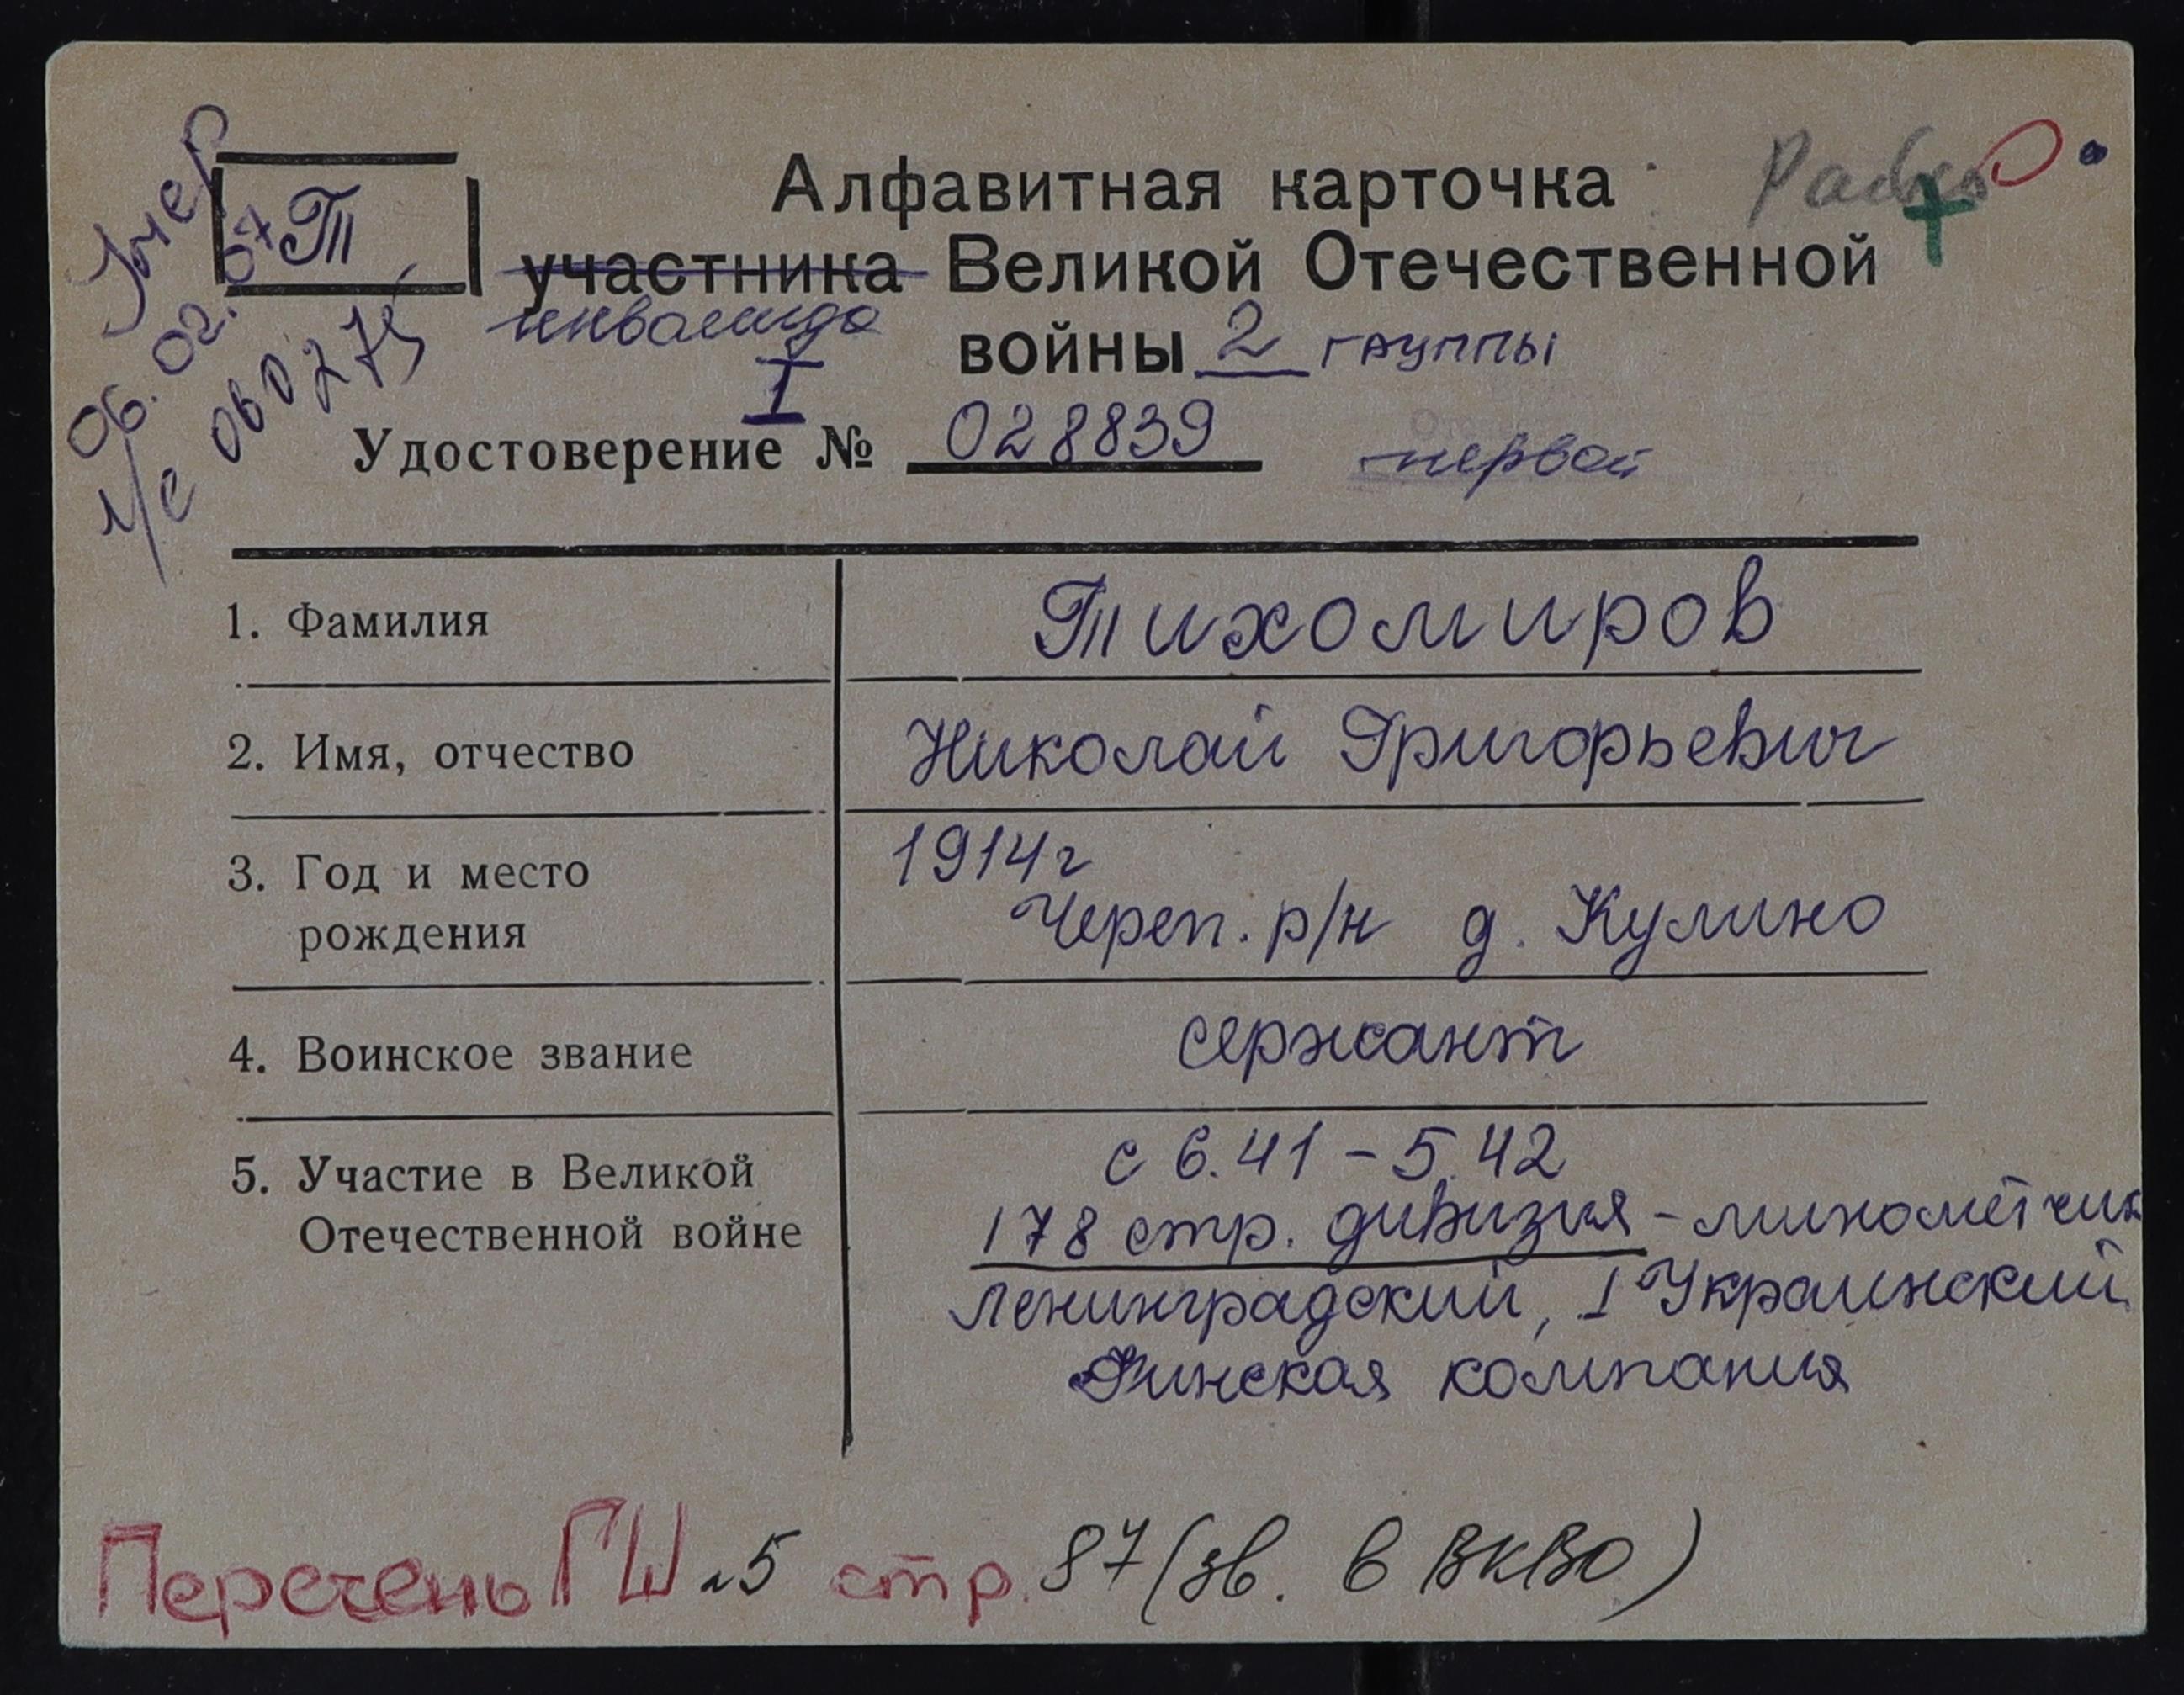 Умер
06.02.07
л/с 060275
Т
Алфавитная карточка
участника Великой Отечественной
инвалида
войны 2 группы
I
Удостоверение № 028839
первой
1. Фамилия Тихомиров
2. Имя, отчество Николай Григорьевич
3. Год и место 1914г
рождения Череп. р/н д. Кулино
4. Воинское звание сержант
5. Участие в Великой с 6.41 - 5.42
Отечественной войне 178 стр. дивизия - миномётчик
Ленинградский, I Украинский
Финская компания
Перечень ГШ 5 стр. 87 (зв. в ВКВО)